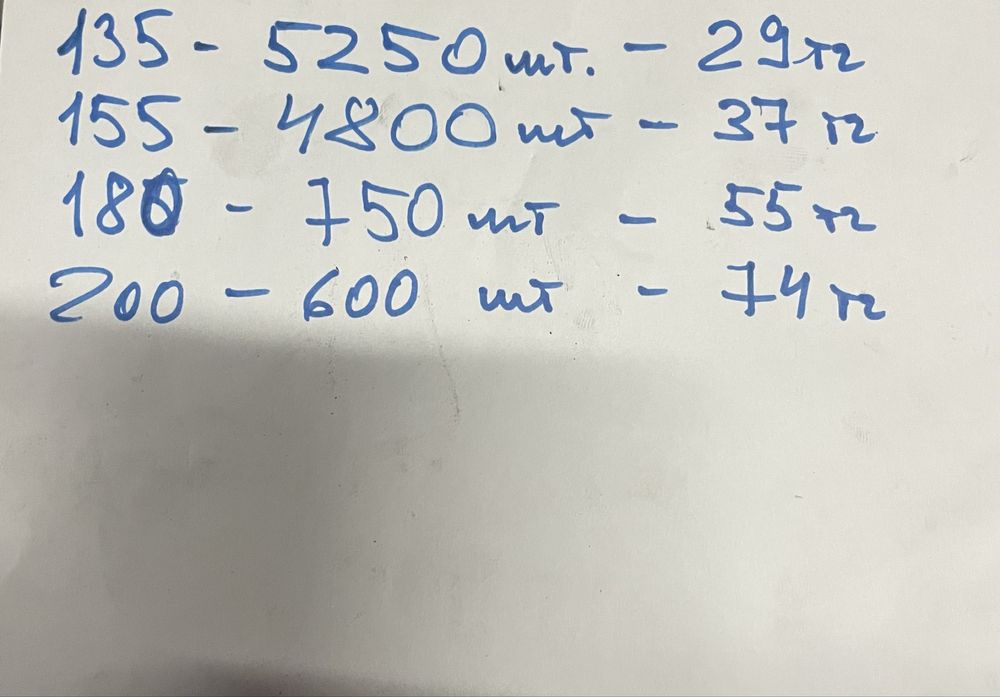 135 - 5250 шт. - 29 тг
155 - 4800 шт - 37 тг
180 - 750 шт - 55 тг
200 - 600 шт - 74 тг